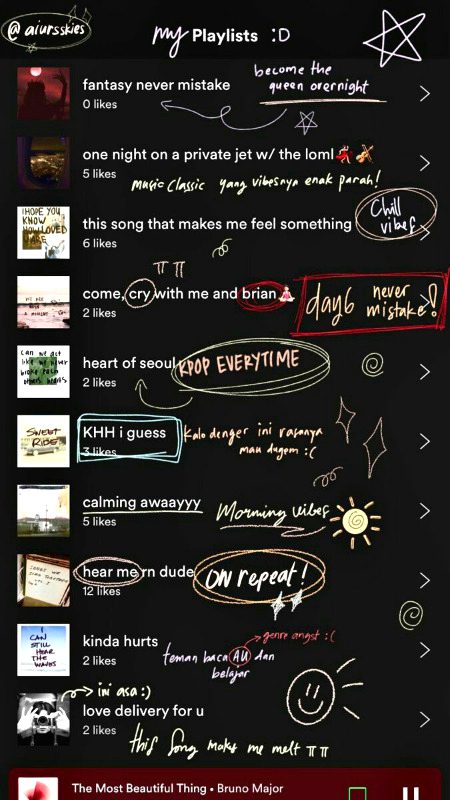 @aiursskies
my Playlists :D
fantasy never mistake
0 likes
become the
queen overnight
one night on a private jet w/ the loml💃🎻
5 likes
music classic yang vibesnya enak parah!
I HOPE YOU
KNOW
HOW LOVED
YOU ARE
this song that makes me feel something
6 likes
Chill
vibes
TT TT
come, cry with me and brian🧘🏻‍♀️
2 likes
day6 never
mistake!
can we act
like we never
broke each
others hearts
heart of seoul
2 likes
KPOP EVERYTIME
SWEET
RIDE
KHH i guess
3 likes
Kalo denger ini rasanya
mau dugem :(
calming awaayyy
5 likes
Morning vibes
hear me rn dude
12 likes
ON repeat!
I
CAN
STILL
HEAR
THE
WAVES
kinda hurts
2 likes
genre angst :(
teman baca AU dan
belajar
ini asa :)
love delivery for u
2 likes
this song makes me melt TT TT
The Most Beautiful Thing • Bruno Major